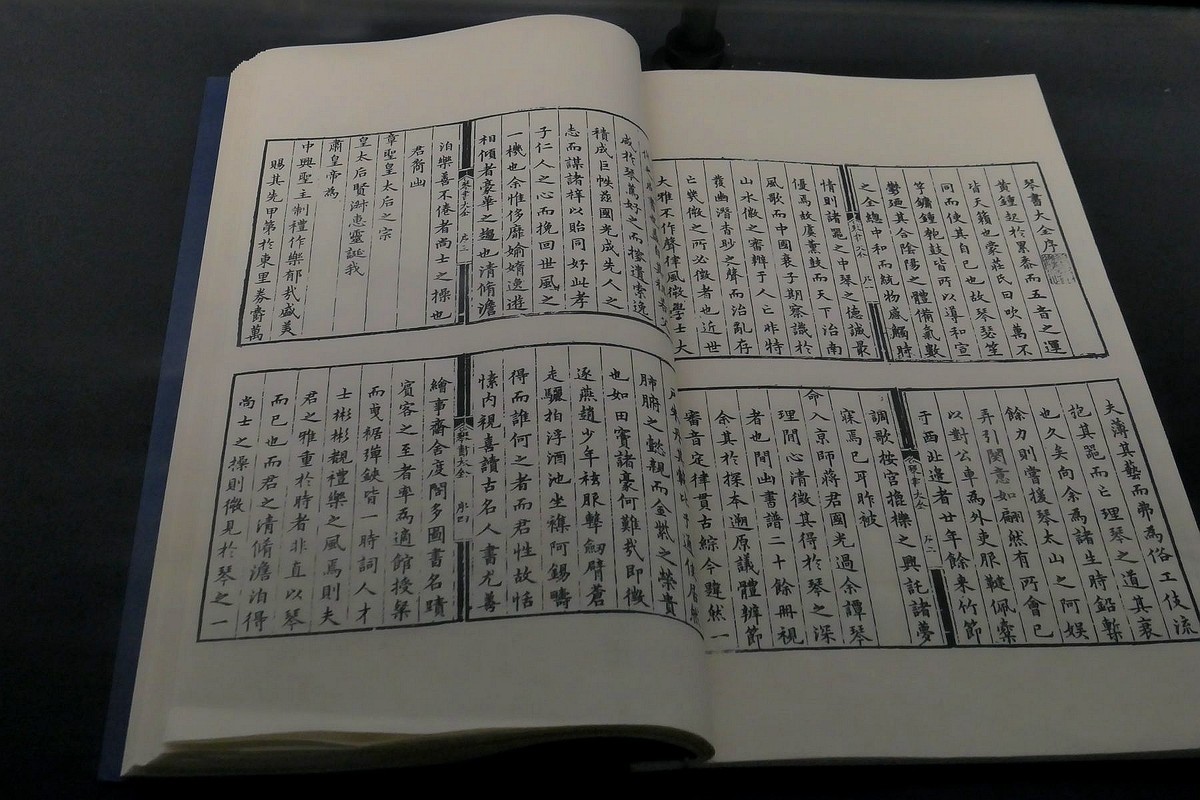 琴書大全序
黃鍾起於累黍而五音之運
皆天籟也蒙莊氏曰吹萬不
同而使其自已也故琴瑟笙
竽鏞鍾匏鼓皆所以導和宣
鬱廼其合陰陽之體備氣數
之全總中和而統物感觸時
琴書大全 序一
情則諸噐之中琴之德誠最
優焉故虞薰鼓而天下治南
風歌而中國襄子期察識於
山水微之審辨于人亡非特
發幽潛杳眇之聲而治亂存
亡㡬微之所必徵者也近世
大雅不作聲律風微學士大
夫薄其藝而弗為俗工伎流
抱其噐而亡理琴之道其衰
也久矣向余為諸生時鉛槧
餘力則嘗援琴太山之阿娱
弄引闋意如翩然有所會已
以對公車為外吏服鞬佩櫜
于西陲邊者廿年餘来竹節
琴書大全 序二
調歌按宮之興託諸夢
寐焉已耳昨被
命入京師蔣君國光過余譚琴
理間心清徵其得於琴之深
者也間出書譜二十餘冊視
余其於探本遡原議體辨節
審音定律貫古綜今然一
成於琴萬好之而遺索逸
積成巨帙茲國光成先人之
志而謀諸梓以貽同好此孝
子仁人之心而挽回世風之
一機也余惟侈靡婾媠遊
相傾者豪華之趨也清脩澹
琴書大全 序三
泊樂善不倦者尚士之操也
君裔出
章聖皇太后之宗
皇太后賢淑惠靈誕我
肅皇帝為
中興聖主制禮作樂郁哉盛美
賜其先甲第於東里券爵萬
肺腑之懿親而金紫之榮貴
也如田竇諸豪何難哉即微
逐燕趙少年袨服擊劒臂蒼
走驪拍浮酒池坐褥阿錫疇
得而誰何之者而君性故恬
愫内視喜讀古名人書尤善
琴書大全 序四
繪事齋舍庋閣多圖書名蹟
賓客之至者率為適館授粲
而曳裾彈鋏皆一時詞人才
士彬彬觀禮樂之風焉則夫
君之雅重於時者非直以琴
而已也而君之清脩澹泊得
尚士之操則微見於琴之一